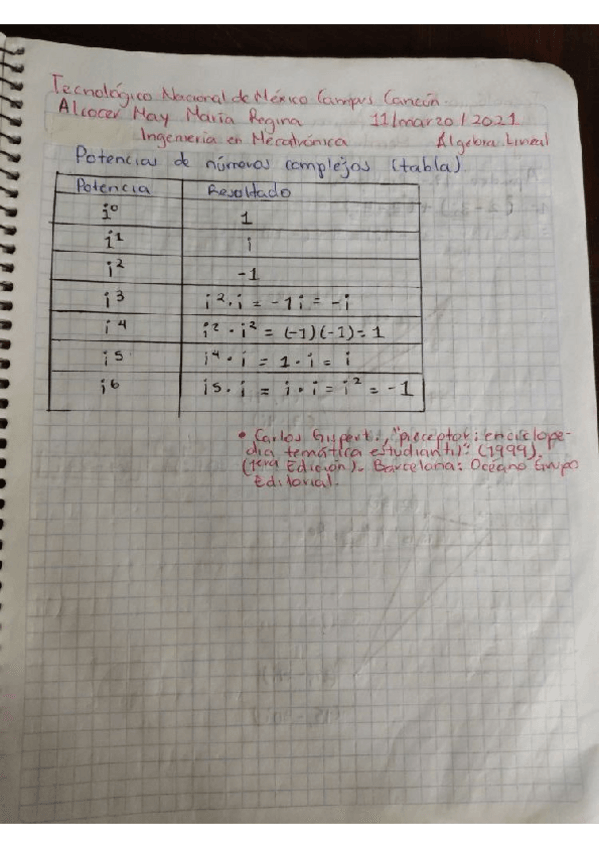 Tecnológico Nacional de México Campus Cancún.
Alcocer May María Regina 11/marzo/2021
Ingeniería en Mecatrónica Álgebra Lineal
Potencias de números complejos (tabla)
Potencia Resultado
i⁰ 1
i¹ i
i² -1
i³ i²·i = -1i = -i
i⁴ i²·i² = (-1)(-1)=1
i⁵ i⁴·i = 1·i = i
i⁶ i⁵·i = i·i = i² = -1
• Carlos Gispert., "preceptor: enciclope-
dia temática estudiantil" (1999).
(1era Edición). Barcelona: Océano Grupo
Editorial.